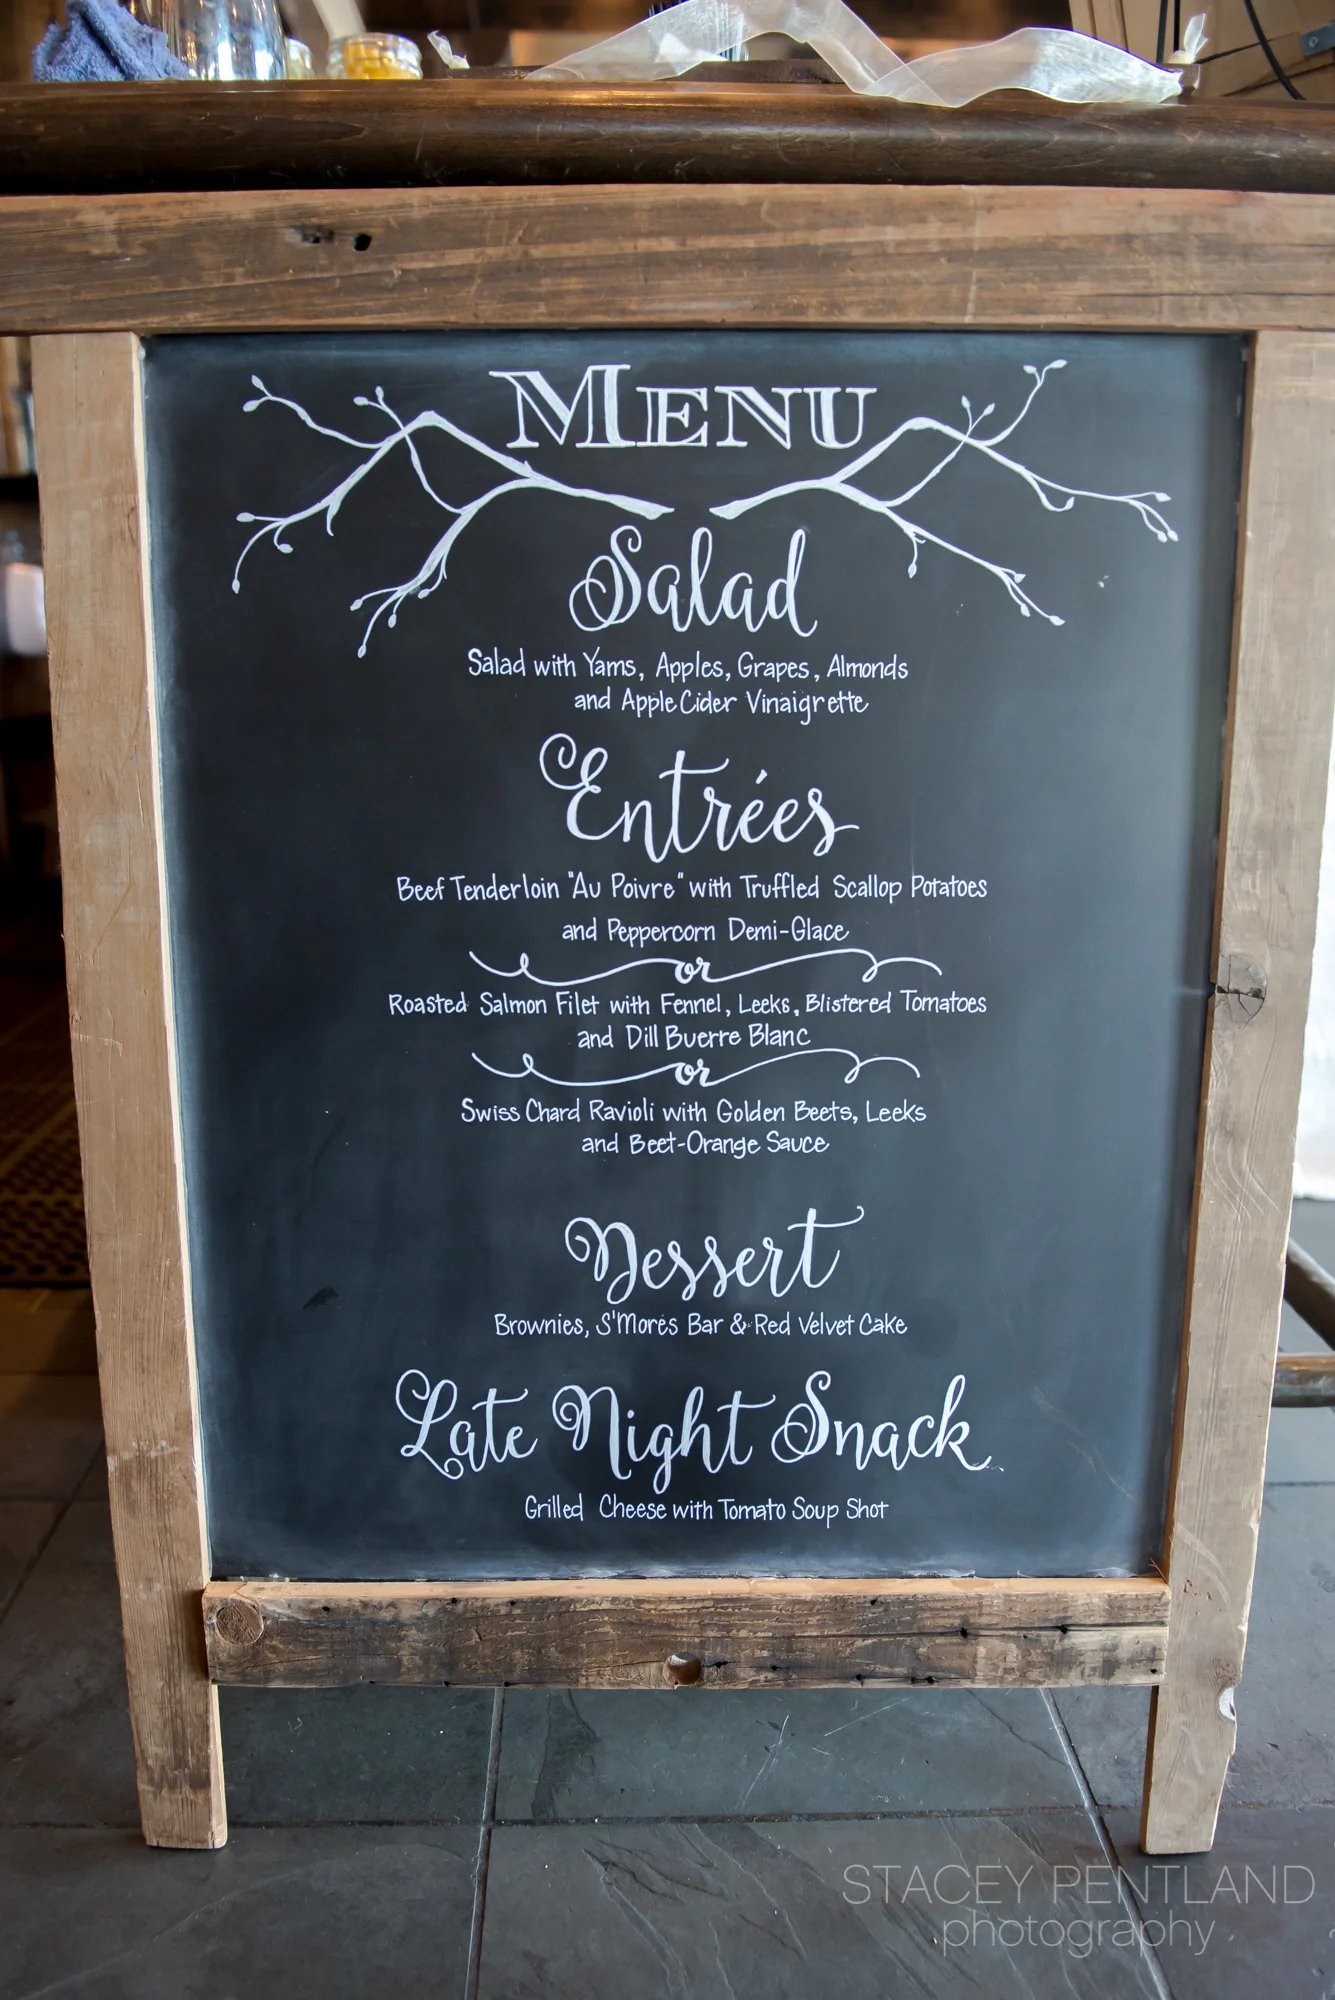 MENU
Salad
Salad with Yams, Apples, Grapes, Almonds
and Apple Cider Vinaigrette
Entrées
Beef Tenderloin "Au Poivre" with Truffled Scallop Potatoes
and Peppercorn Demi-Glace
or
Roasted Salmon Filet with Fennel, Leeks, Blistered Tomatoes
and Dill Buerre Blanc
or
Swiss Chard Ravioli with Golden Beets, Leeks
and Beet-Orange Sauce
Dessert
Brownies, S'Mores Bar & Red Velvet Cake
Late Night Snack
Grilled Cheese with Tomato Soup Shot
STACEY PENTLAND
photography